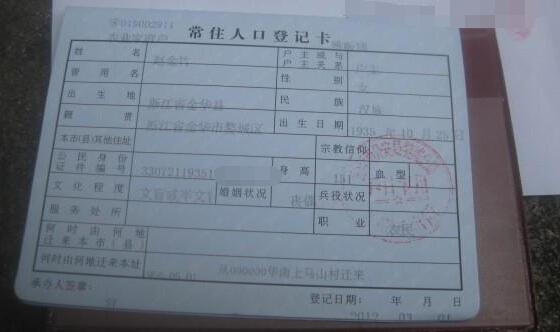 常住人口登记卡
姓名 赵金竹 户主或与户主关系 户主
曾用名 性别 女
出生地 浙江省金华县 民族 汉族
籍贯 浙江省金华市婺城区 出生日期 1935年10月25日
本市(县)其他住址 宗教信仰
公民身份证件编号 33072119351 身高 151 血型
文化程度 文盲或半文 婚姻状况 丧偶 兵役状况
服务处所 职业 农民
何时由何地迁来本市(县)
何时由何地迁来本址 从000000华南上马山村迁来
承办人签章: 登记日期: 年 月 日